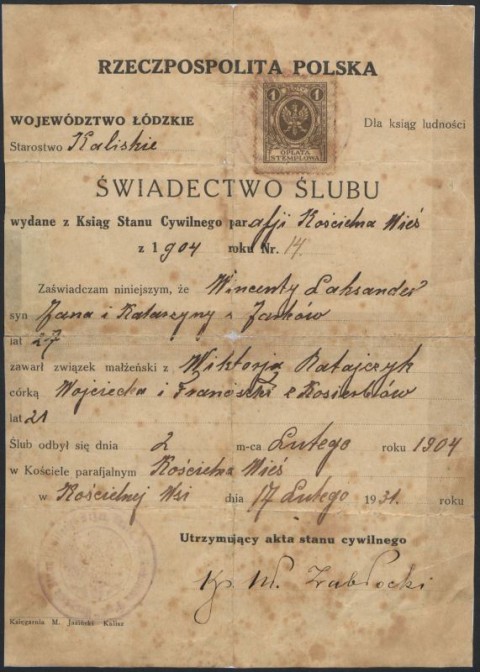 RZECZPOSPOLITA POLSKA
1 1
OPŁATA
STEMPLOWA
WOJEWÓDZTWO ŁÓDZKIE
Dla ksiąg ludności
Starostwo Kaliskie
ŚWIADECTWO ŚLUBU
wydane z Ksiąg Stanu Cywilnego parafji Kościelna Wieś
z 1904 roku Nr. 14.
Zaświadczam niniejszym, że Wincenty
syn Jana i Katarzyny z Janków
lat 27
zawarł związek małżeński z Wiktorją Ratajczyk
córką Wojciecha i Franciszki z
lat 21
Ślub odbył się dnia 2 m-ca Lutego roku 1904
w Kościele parafjalnym Kościelna Wieś
w Kościelnej Wsi dnia 17 Lutego 1931. roku
Utrzymujący akta stanu cywilnego
Ks. W. Zabłocki
Księgarnia M. Jasiński Kalisz